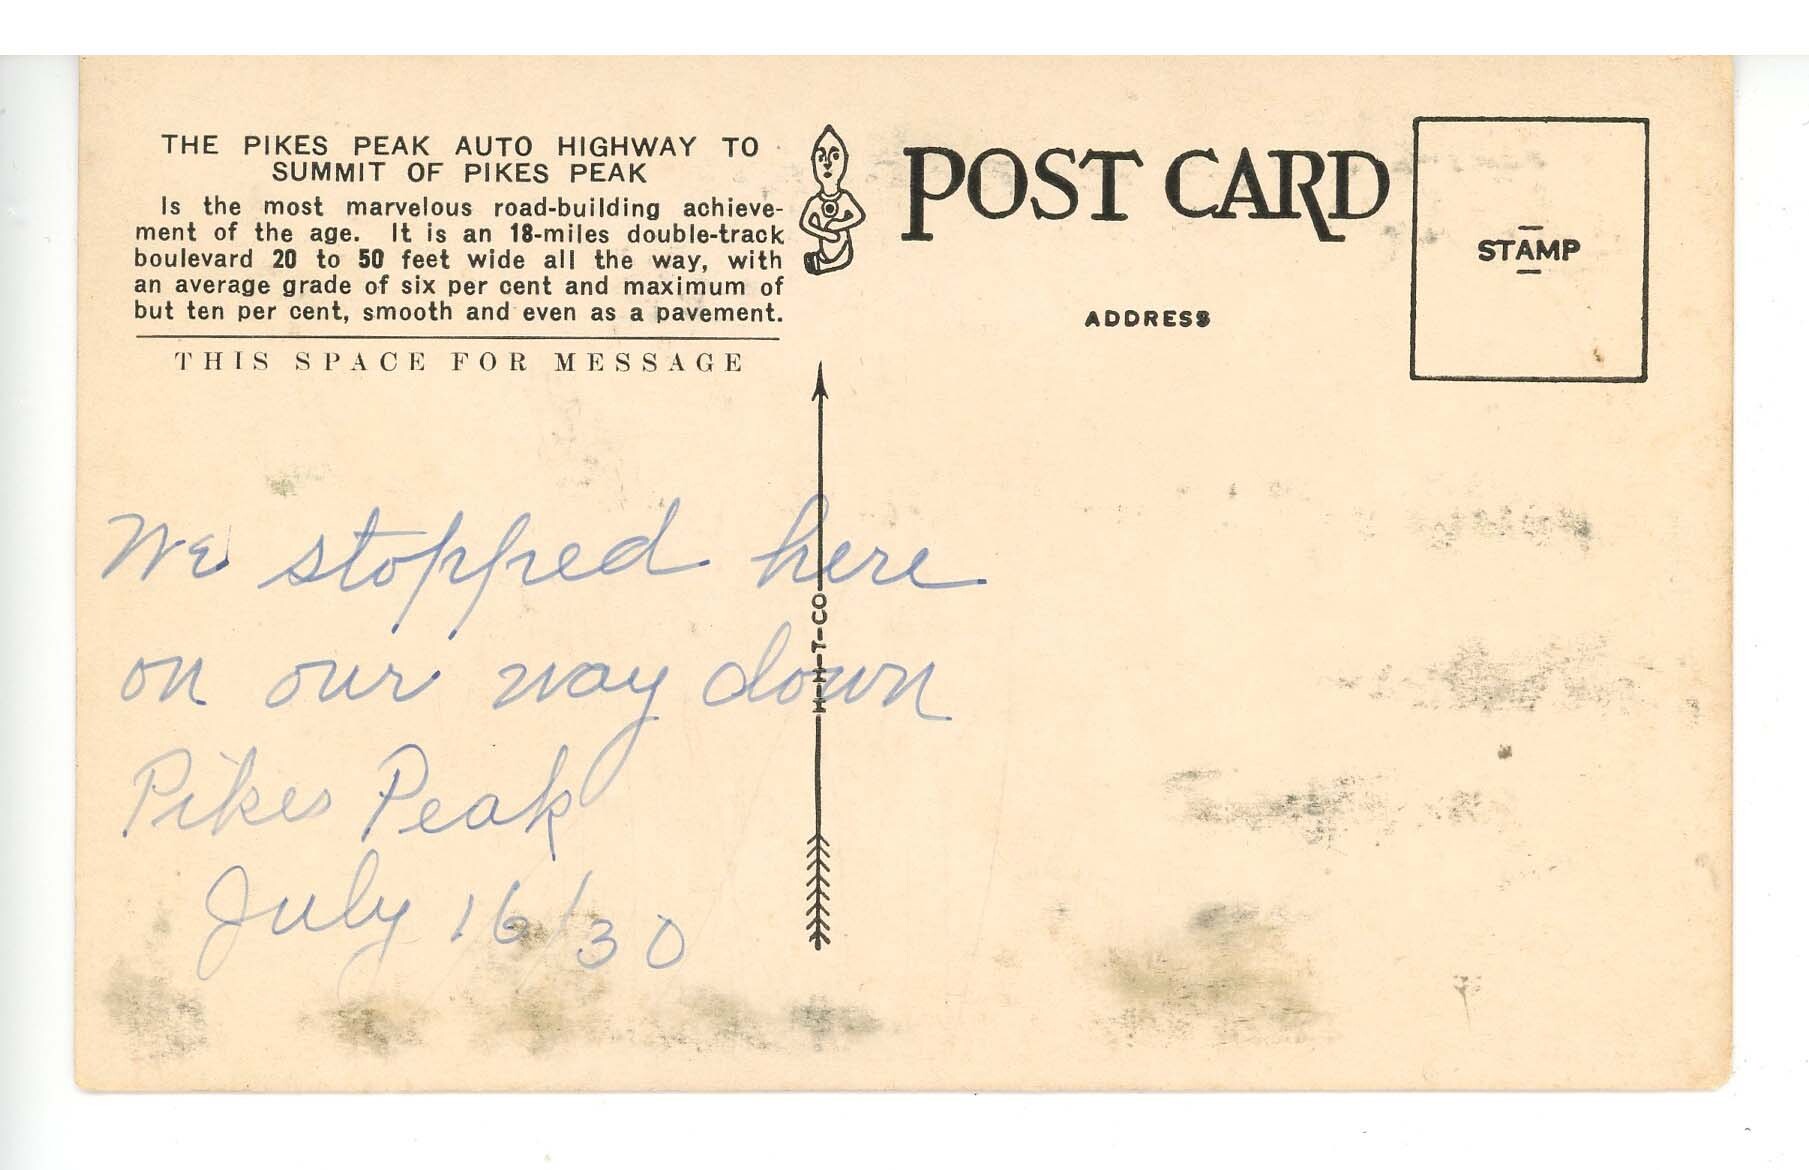 THE PIKES PEAK AUTO HIGHWAY TO
SUMMIT OF PIKES PEAK
Is the most marvelous road-building achieve-
ment of the age. It is an 18-miles double-track
boulevard 20 to 50 feet wide all the way, with
an average grade of six per cent and maximum of
but ten per cent, smooth and even as a pavement.
THIS SPACE FOR MESSAGE
POST CARD
ADDRESS
STAMP
H-H-T-CO
We stopped here
on our way down
Pikes Peak
July 16/30